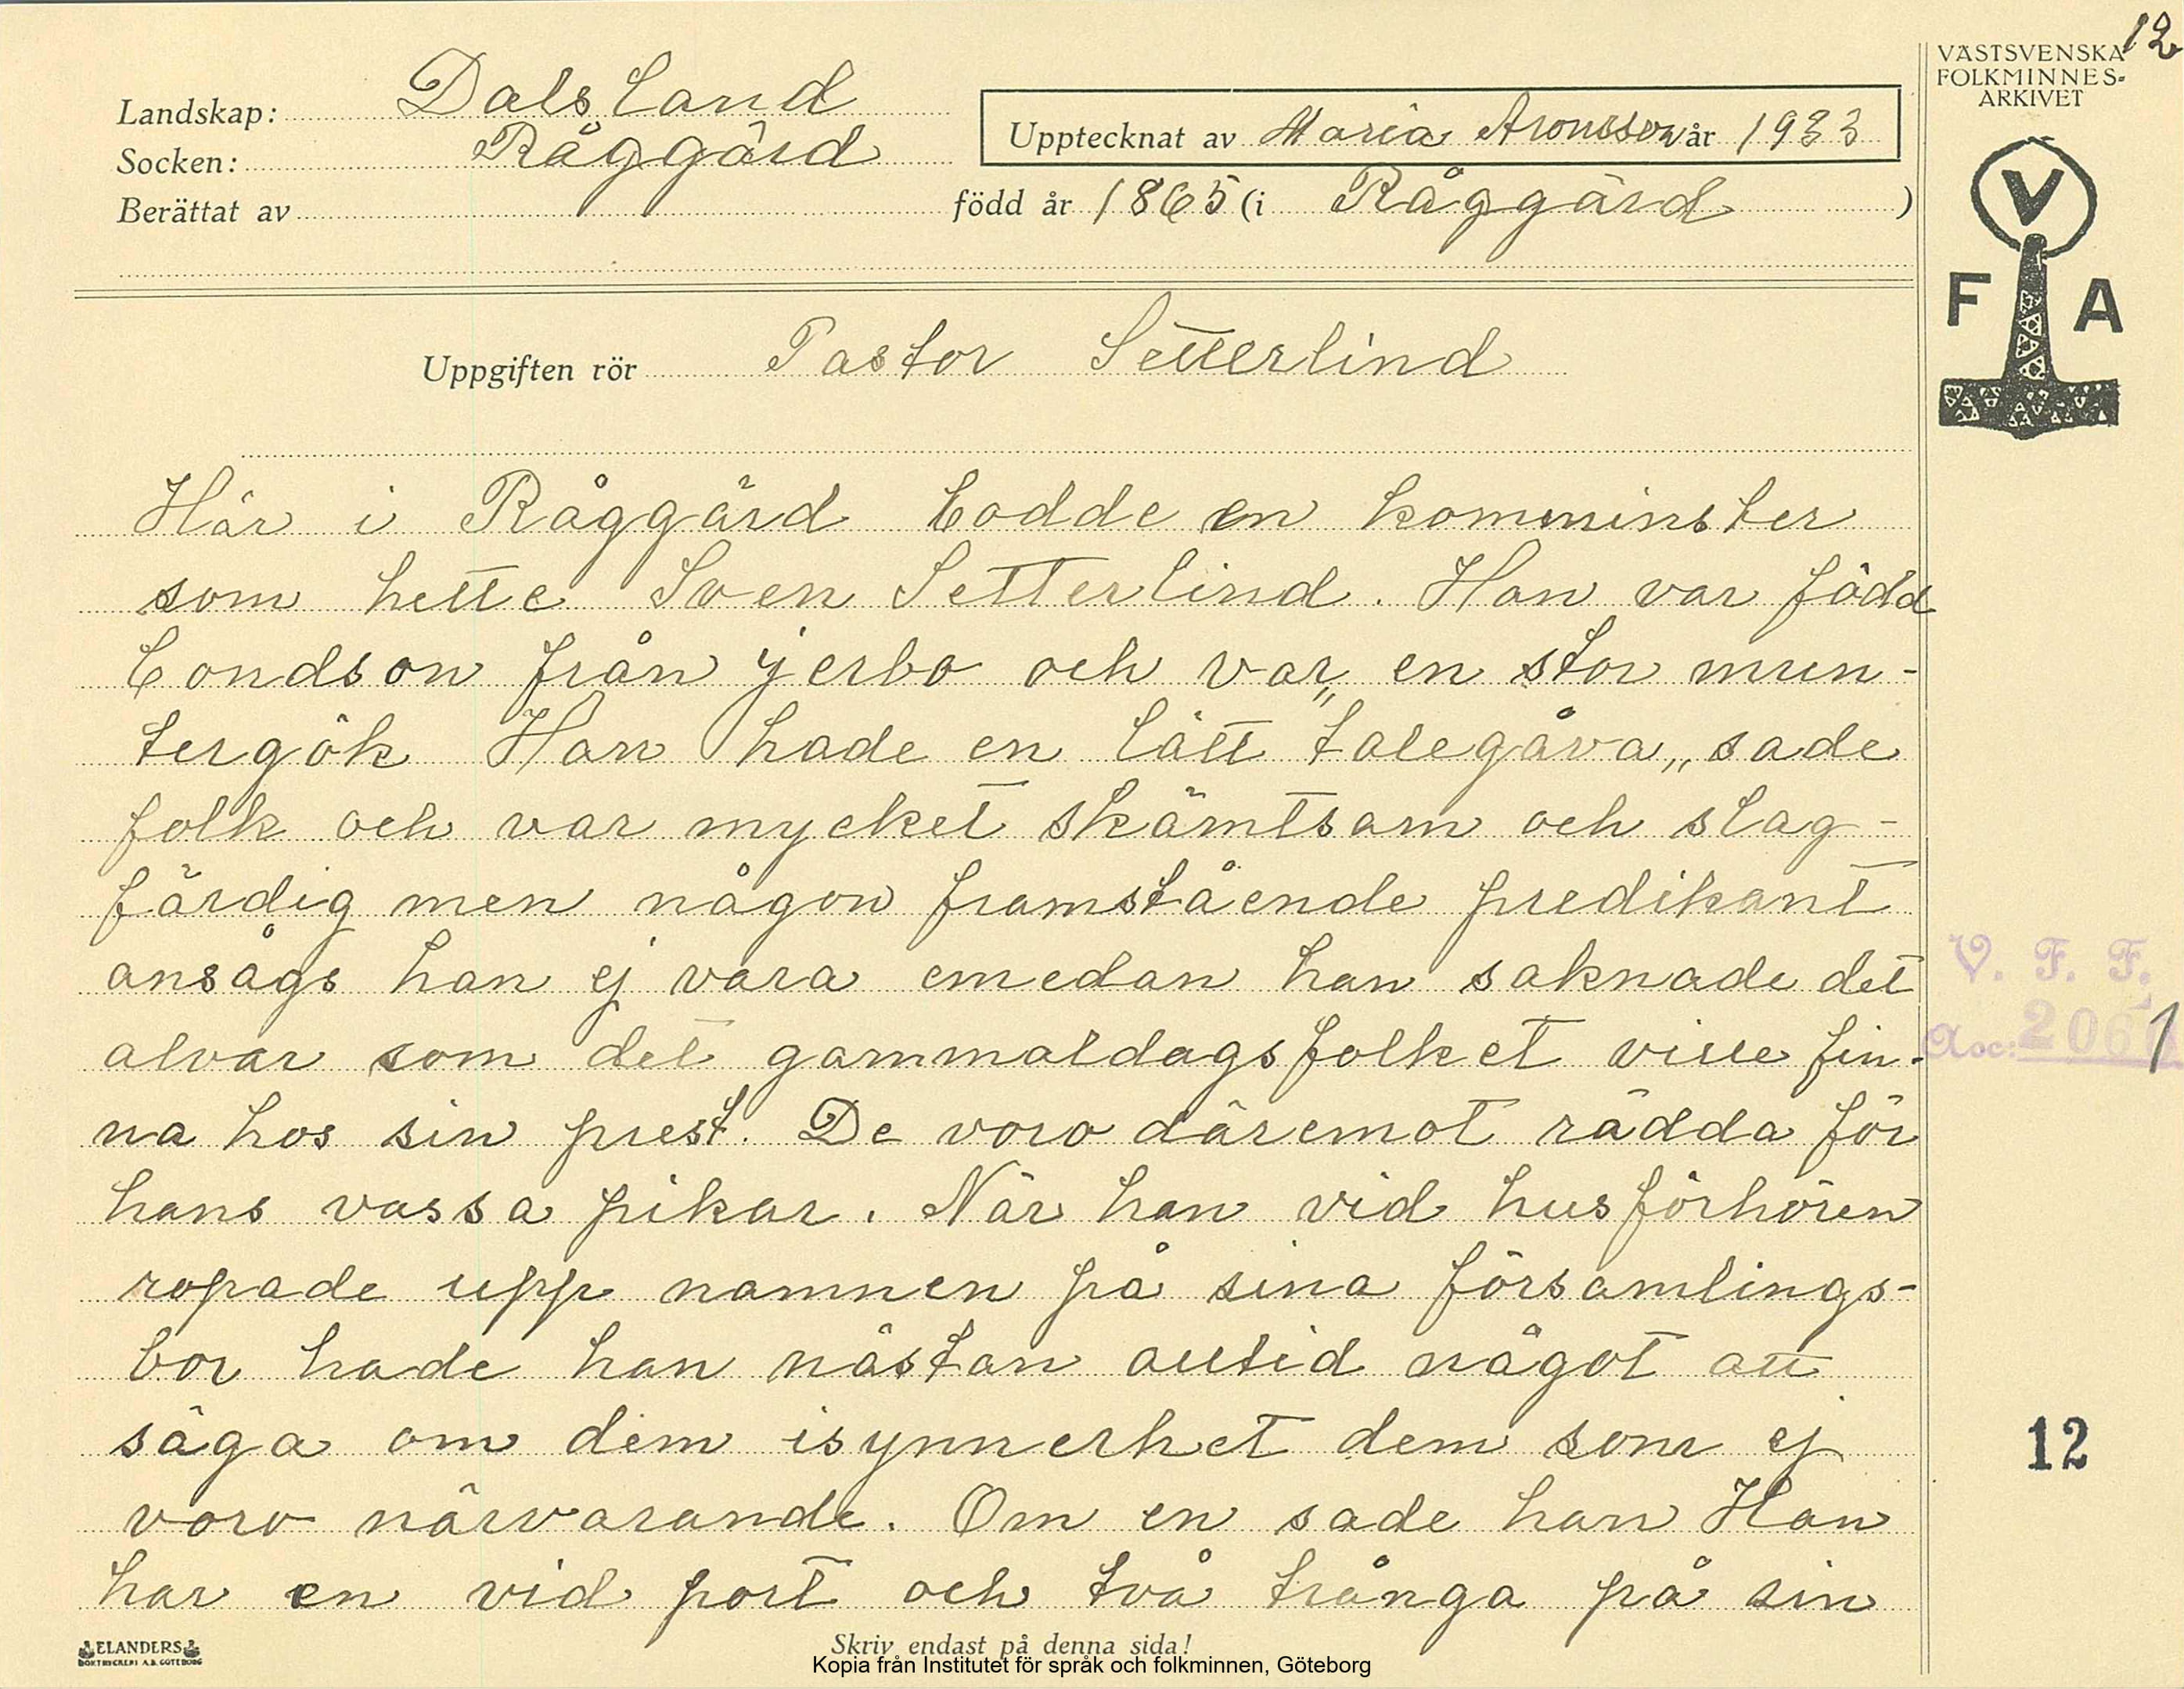 12
VÄSTSVENSKA
FOLKMINNES-
ARKIVET
Landskap: Dalsland
Socken: Råggärd
Upptecknat av Maria Aronsson år 1933
Berättat av född år 1865 (i Råggärd )
V
F A
Uppgiften rör Pastor Setterlind
Här i Råggärd bodde en komminister
som hette Sven Setterlind. Han var född
bondson från Jerbo och var en stor mun-
tergök Han hade en "lätt talegåva" sade
folk och var mycket skämtsam och slag-
färdig men någon framstående predikant
ansågs han ej vara emedan han saknade det
alvar som det gammaldagsfolket ville fin-
na hos sin prest. De voro däremot rädda för
hans vassa pikar. När han vid husförhören
ropade upp namnen på sina församlings-
bor hade han nästan alltid något att
säga om dem isynnerhet dem som ej
voro närvarande. Om en sade han Han
har en vid port och två trånga på sin
V. F. F.
Acc: 2061
12
ELANDERS
BOKTRYCKERI A.B. GÖTEBORG
Skriv endast på denna sida!
Kopia från Institutet för språk och folkminnen, Göteborg